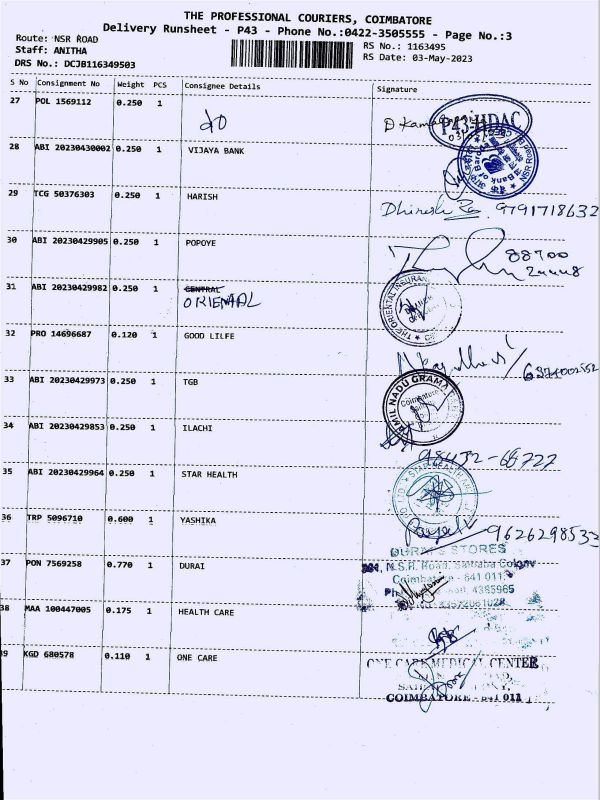 THE PROFESSIONAL COURIERS, COIMBATORE
Delivery Runsheet - P43 - Phone No.:0422-3505555 - Page No.:3
Route: NSR ROAD
Staff: ANITHA
DRS No.: DCJB116349503
RS No.: 1163495
RS Date: 03-May-2023
S No Consignment No Weight PCS Consignee Details Signature
27 POL 1569112 0.250 1
P43-HDAC
28 ABI 20230430002 0.250 1 VIJAYA BANK
29 TCG 50376303 0.250 1 HARISH 9791718632
30 ABI 20230429905 0.250 1 POPOYE 88700
31 ABI 20230429982 0.250 1 CENTRAL
ORIENTAL
THE ORIENTAL INSURANCE
32 PRO 14696687 0.120 1 GOOD LILFE
33 ABI 20230429973 0.250 1 TGB
TAMIL NADU GRAMA
Coimbatore
34 ABI 20230429853 0.250 1 ILACHI
98432-68727
35 ABI 20230429964 0.250 1 STAR HEALTH
36 TRP 5096710 0.600 1 YASHIKA 9626298533
37 PON 7569258 0.770 1 DURAI
DURAI STORES
N.S.R. Road, Saibaba Colony
Coimbatore - 641 011.
38 MAA 100447005 0.175 1 HEALTH CARE
39 KGD 680578 0.110 1 ONE CARE
ONE CARE MEDICAL CENTER
COIMBATORE - 641 011